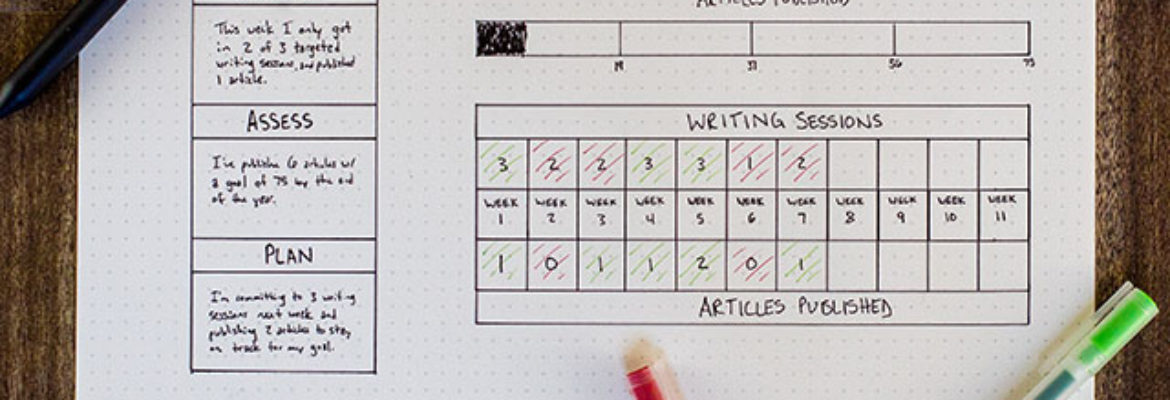 This week I only got
in 2 of 3 targeted
writing sessions, and published
1 article.
ASSESS
I've publishe 6 articles w/
a goal of 75 by the end
of the year.
PLAN
I'm committing to 3 writing
sessions next week and
publishing 2 articles to stay
on track for my goal.
ARTICLES PUBLISHED
19 37 56 75
WRITING SESSIONS
3 2 2 3 3 1 2
WEEK WEEK WEEK WEEK WEEK WEEK WEEK WEEK WEEK WEEK WEEK
1 2 3 4 5 6 7 8 9 10 11
1 0 1 1 2 0 1
ARTICLES PUBLISHED